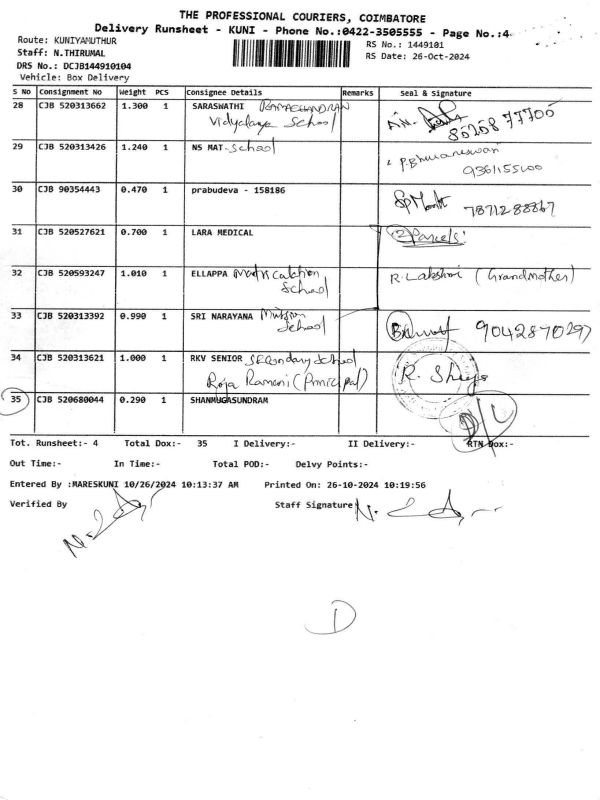 THE PROFESSIONAL COURIERS, COIMBATORE
Delivery Runsheet - KUNI - Phone No.:0422-3505555 - Page No.:4
Route: KUNIYAMUTHUR
RS No.: 1449101
Staff: N.THIRUMAL
RS Date: 26-Oct-2024
DRS No.: DCJB144910104
Vehicle: Box Delivery
S No Consignment No Weight PCS Consignee Details Remarks Seal & Signature
28 CJB 520313662 1.300 1 SARASWATHI RAMACHANDRAN
Vidyalaya School
29 CJB 520313426 1.240 1 NS MAT-School P.Bhuvaneswari
9361155200
30 CJB 90354443 0.470 1 prabudeva - 158186
7871288867
31 CJB 520527621 0.700 1 LARA MEDICAL 2 Parcels
32 CJB 520593247 1.010 1 ELLAPPA Matriculation R.Lakshmi (Grandmother)
School
33 CJB 520313392 0.990 1 SRI NARAYANA Mission 9042870297
School
34 CJB 520313621 1.000 1 RKV SENIOR Secondary School
Roja Ramani (Principal) R.
35 CJB 520680044 0.290 1 SHANMUGASUNDRAM D/L
Tot. Runsheet:- 4 Total Dox:- 35 I Delivery:- II Delivery:- RTN Dox:-
Out Time:- In Time:- Total POD:- Delvy Points:-
Entered By :MARESKUNI 10/26/2024 10:13:37 AM Printed On: 26-10-2024 10:19:56
Verified By Staff Signature
D